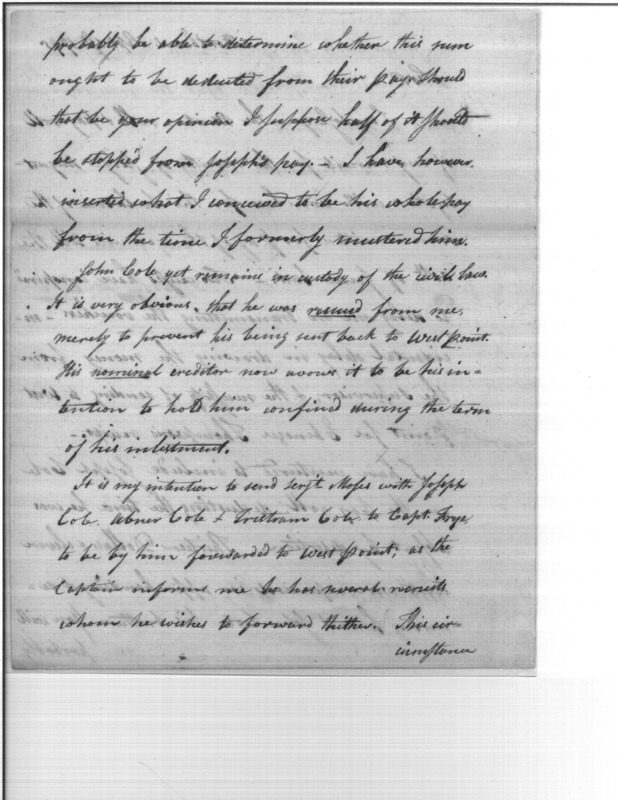 probably be able to determine whether this sum
ought to be deducted from their pay. Should
that be your opinion I suppose half of it should
be stopped from Joseph's pay. — I have, however.
inserted what I conceived to be his whole pay
from the time I formerly mustered him.
John Cole yet remains in custody of the civil law.
It is very obvious, that he was rescued from me,
merely to prevent his being sent back to West point.
His nominal creditor now avows it to be his in-
tention to hold him confined during the term
of his inlistment.
It is my intention to send serjt. Moses with Joseph
Cole. Abner Cole & Tristram Cole. to Capt. Frye,
to be by him forwarded to West point; as the
Captain informs me he has several recruits
whom he wishes to forward thither. This cir-
cumstance